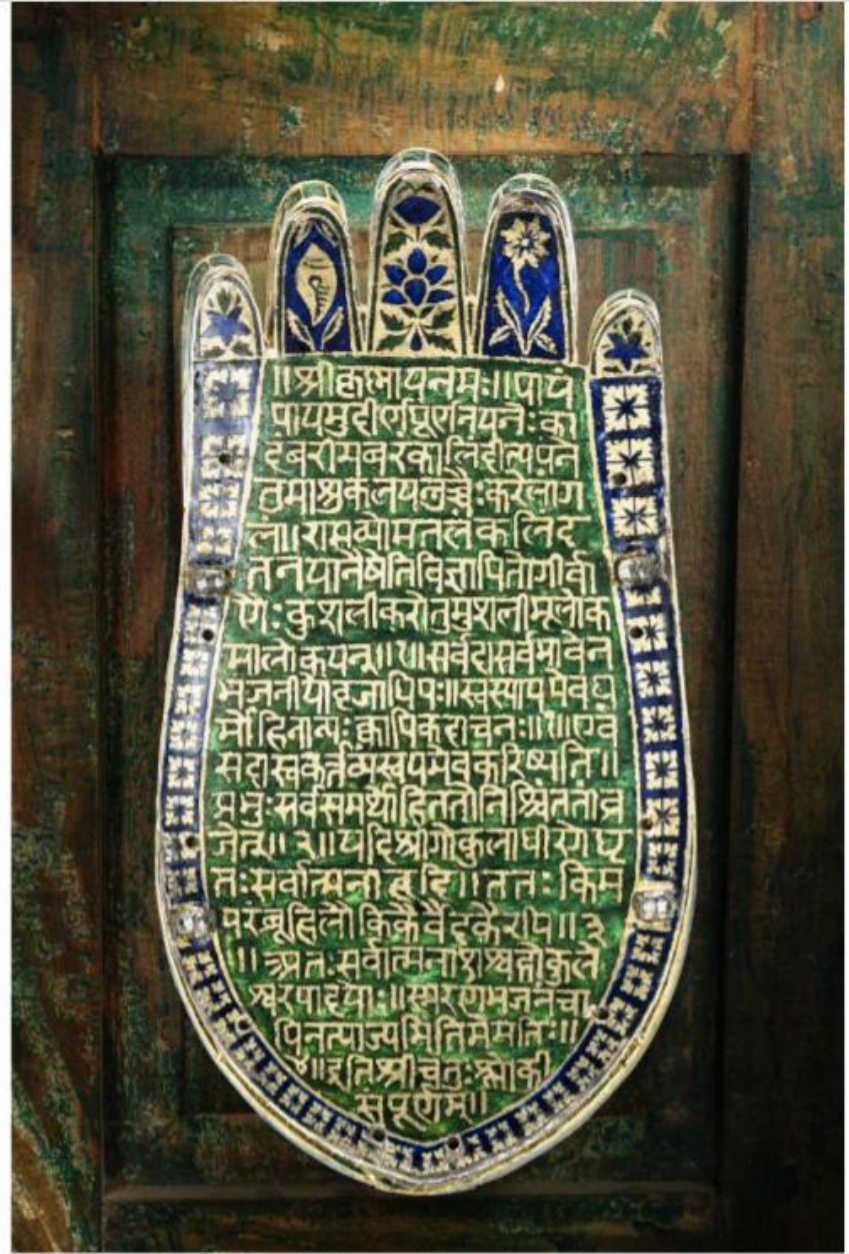 ॥श्रीकृष्णायनमः॥पायं
पायमुदीर्णघूर्णनयनैः का
दंबरीमंबरकालिंदीत्यपने
तुमाशुकलयन्नुच्चैःकरेलांग
लं॥रामव्योमतलंकलिंद
तनयानैषेतिविज्ञापितोगीर्वा
णैःकुशलीकरोतुमुशलीभूलोक
मालोकयन्॥१॥सर्वदासर्वभावेन
भजनीयोव्रजाधिपः॥स्वस्यायमेवध
र्मोहिनान्यःक्वापिकदाचनः॥१॥एवं
सदास्वकर्त्तव्यंस्वयमेवकरिष्यति॥
प्रभुःसर्वसमर्थोहिततोनिश्चिंततांव्र
जेत्॥२॥यदिश्रीगोकुलाधीशोधृ
तःसर्वात्मनाहृदि॥ततःकिम
परंब्रूहिलौकिकैर्वैदिकैरपि॥३
॥अतःसर्वात्मनाशश्वद्गोकुले
श्वरपादयोः॥स्मरणंभजनंचा
पिनत्याज्यमितिमेमतिः॥
४॥इतिश्रीचतुःश्लोकी
संपूर्णम्॥